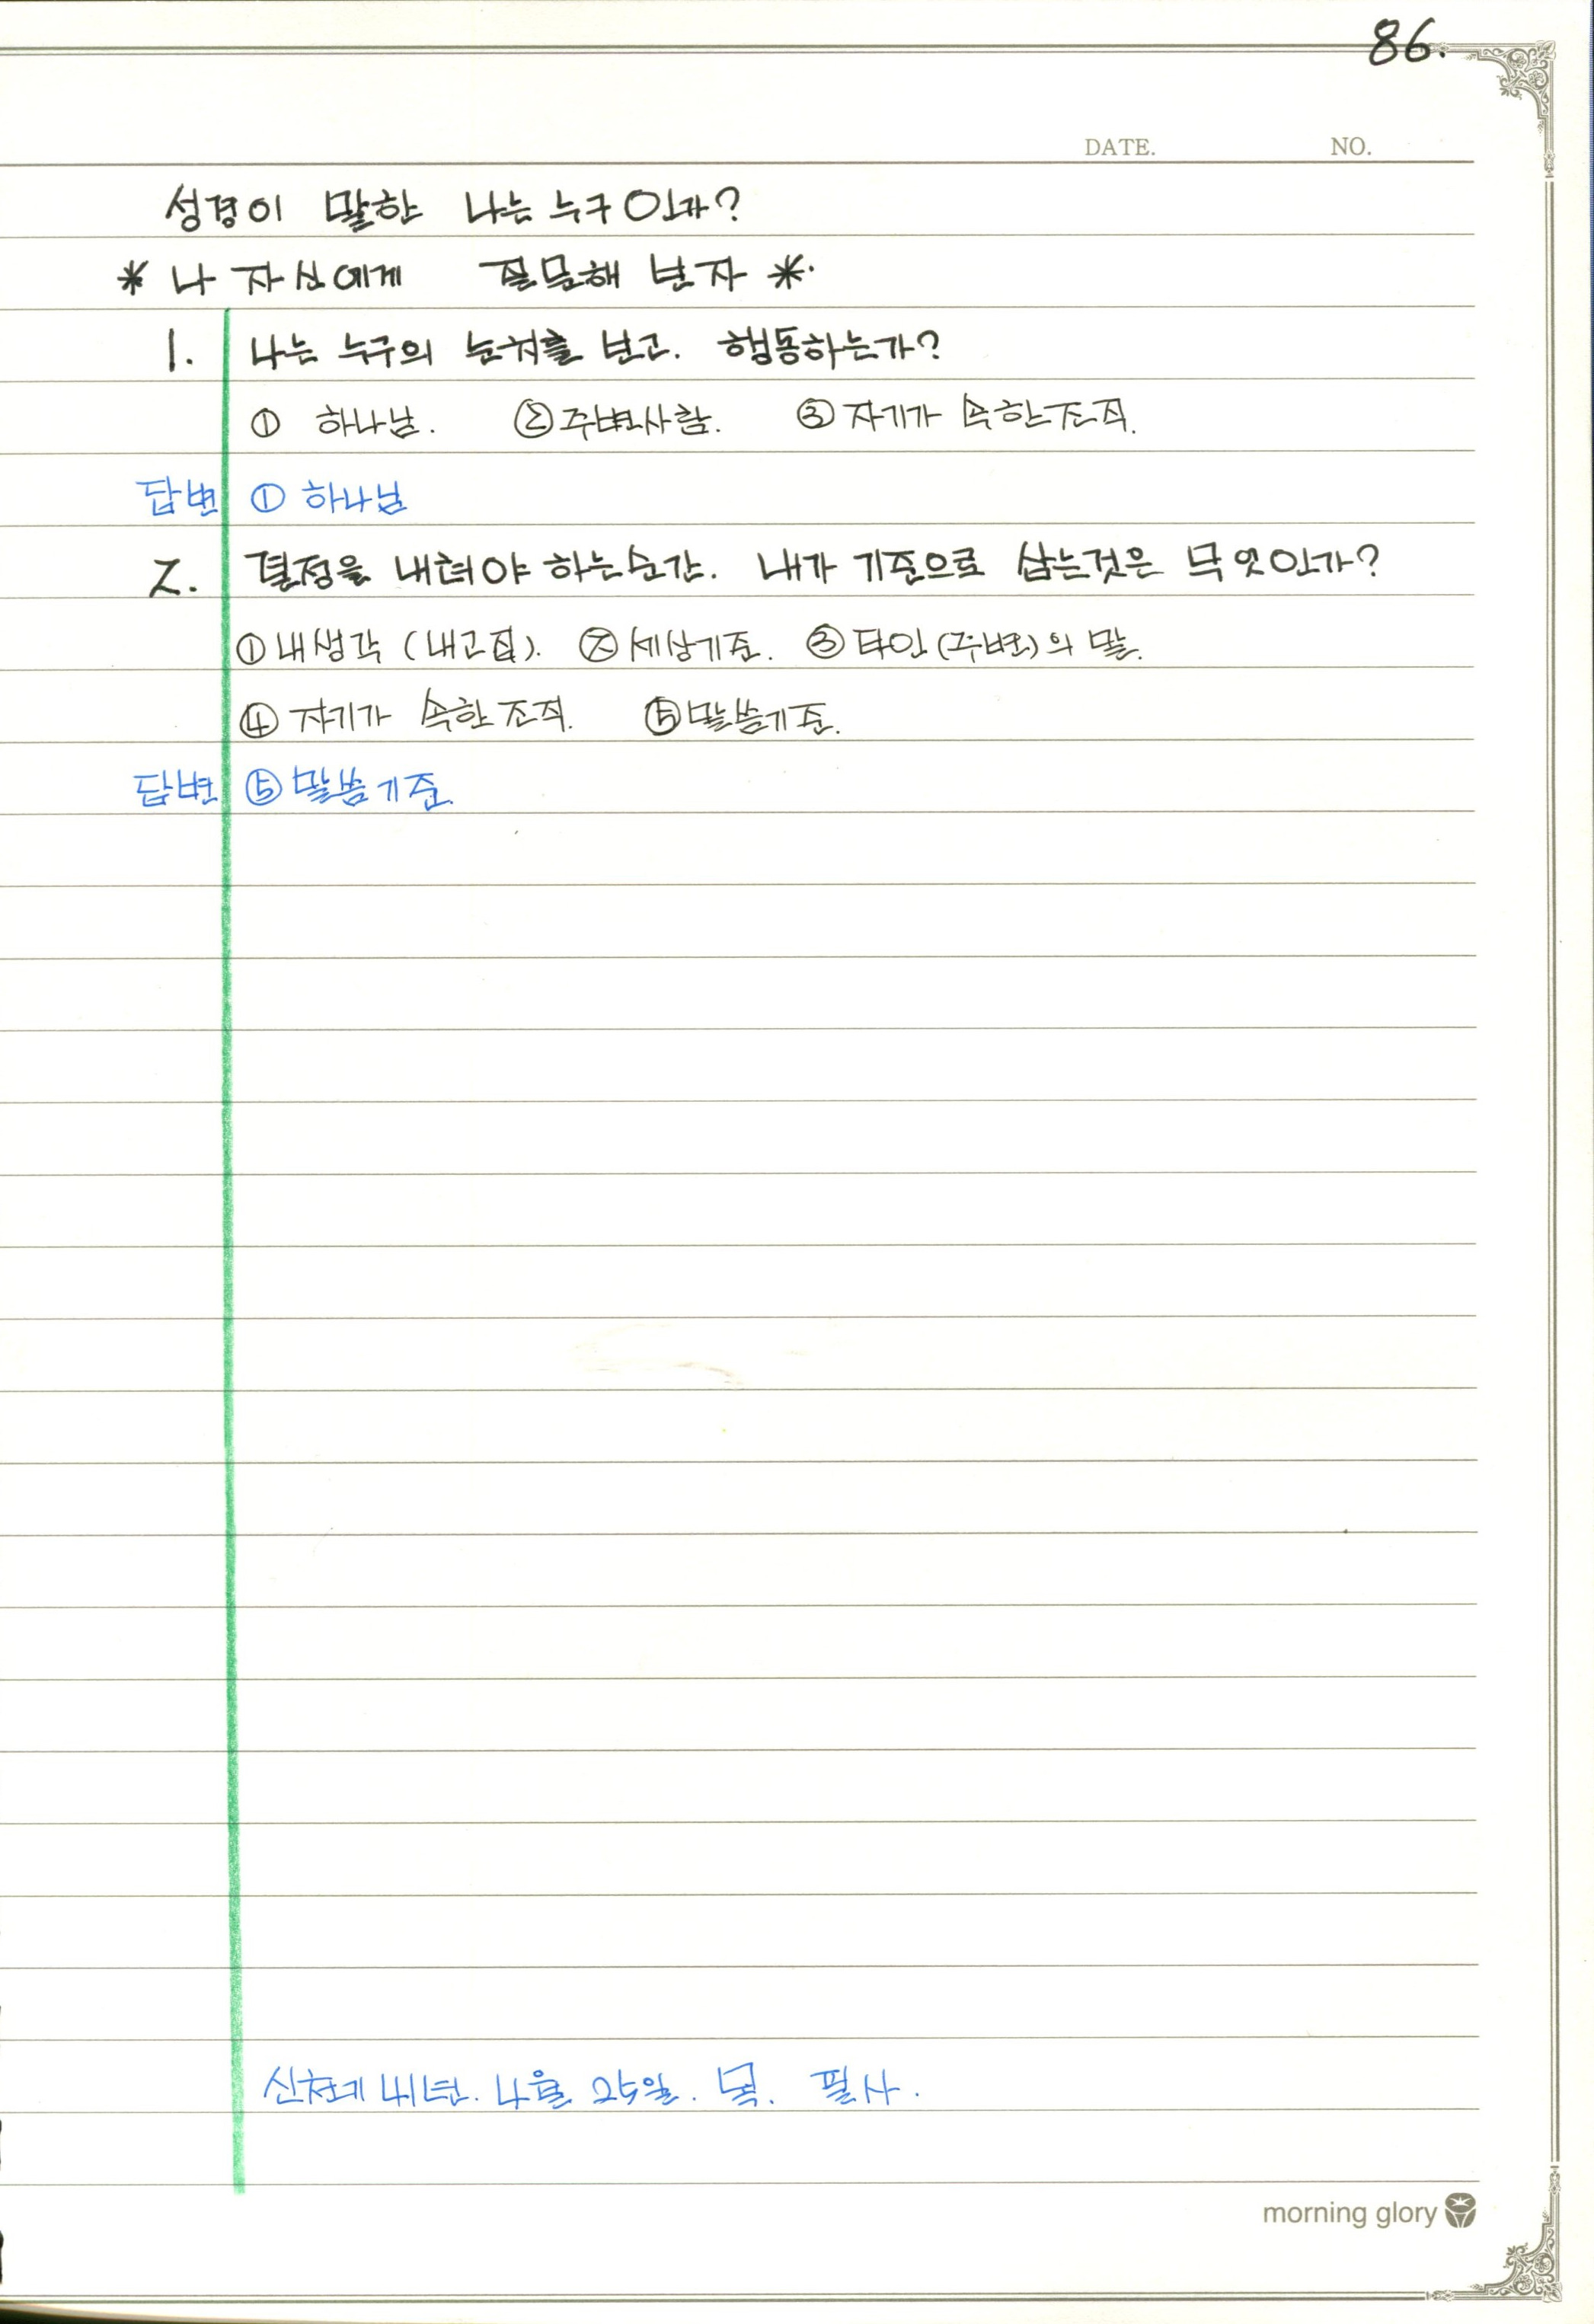 86.
DATE. NO.
성경이 말한 나는 누구인가?
* 나 자신에게 질문해 보자 *.
1. 나는 누구의 눈치를 보고. 행동하는가?
① 하나님. ② 주변사람. ③ 자기가 속한조직.
답변 ① 하나님
2. 결정을 내려야 하는순간. 내가 기준으로 삼는것은 무엇인가?
① 내생각 (내고집). ② 세상기준. ③ 타인(주변)의 말.
④ 자기가 속한조직. ⑤ 말씀기준.
답변 ⑤ 말씀기준.
신천기 41년. 4월 25일. 목. 필사.
morning glory